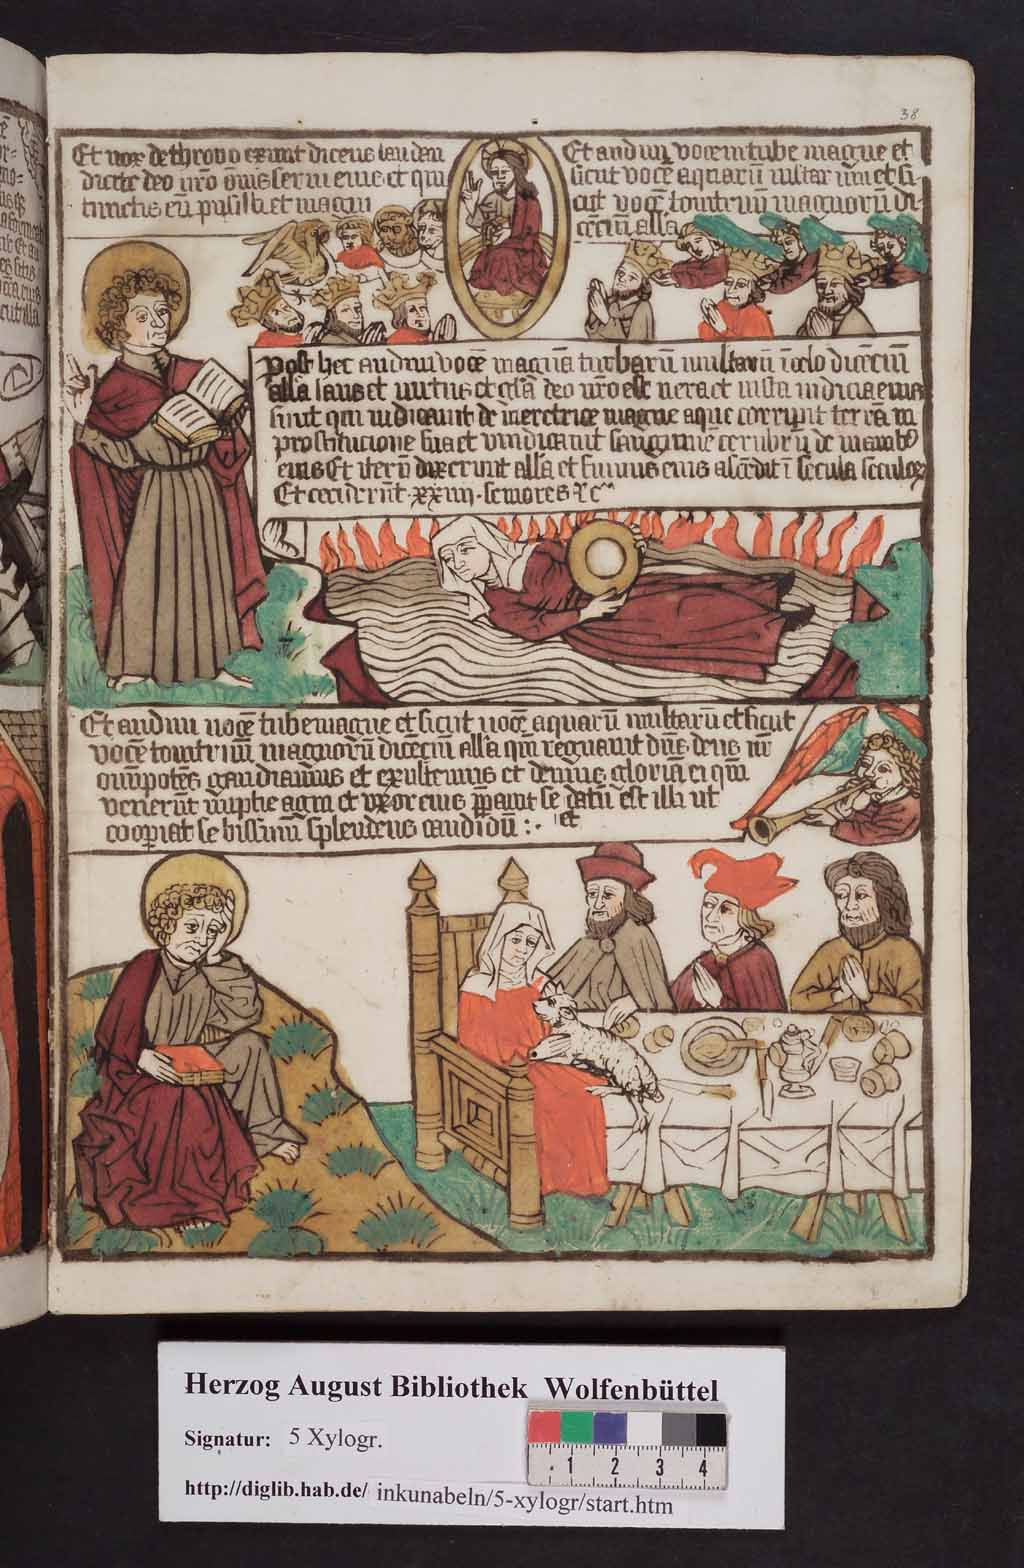 38
Et vox de throno exivit dicens lauden
dicite deo nr̄o om̄s servi eius et qui
timetis eū pusilli et magni
Et audivi vocem tube magne et
sicut vocē aquarū multarum et si
cut vocē tonitruū magnorū di
cenciū all'a
Post hec audivi vocē magnā turbarū multarū ī celo dicēciū
all'a laus et virtus et gl'a deo nr̄o est vera et iusta iudicia eius
sunt qui iudicavit de meretrice magne a que corrupit terrā in
prostitucione sua et vindicavit sanguinē de manib9
eius Et iterū dixerunt all'a et fumus eius ascēdit ī secula seculoꝝ
Et ceciderūt xxiiii seniores ⁊c
Et audivi vocē tube magne et sicut vocē aquarū multarū et sicut
vocē tonitruū magnorū dicēciū all'a qm̄ regnavit dn̄s deus nr̄
omnipotēs gaudiamus et exultemus et demus gloriā ei qm̄
venerūt nuptie agni et uxor eius p̄pavit se datū est illi ut
cooperiat se bissinū splendens candidū : et
Herzog August Bibliothek Wolfenbüttel
Signatur: 5 Xylogr.
http://diglib.hab.de/ inkunabeln/5-xylogr/start.htm
1 2 3 4